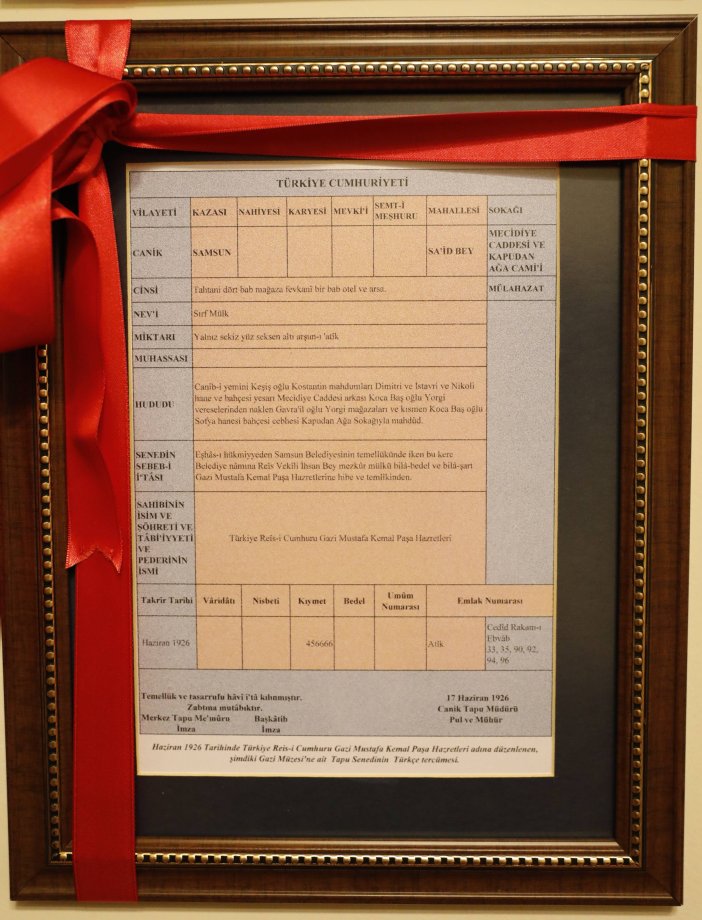 TÜRKİYE CUMHURİYETİ
VİLAYETİ KAZASI NAHİYESİ KARYESİ MEVKİ'İ SEMT-İ MEŞHURU MAHALLESİ SOKAĞI
CANİK SAMSUN SA'İD BEY MECİDİYE CADDESİ VE KAPUDAN AĞA CAMİ'İ
CİNSİ Tahtani dört bab mağaza fevkanî bir bab otel ve arsa. MÜLAHAZAT
NEV'İ Sırf Mülk
MİKTARI Yalnız sekiz yüz seksen altı arşun-ı 'atîk
MUHASSASI
HUDUDU
Canîb-i yemini Keşiş oğlu Kostantin mahdumları Dimitri ve İstavri ve Nikoli
hane ve bahçesi yesarı Mecidiye Caddesi arkası Koca Baş oğlu Yorgi
vereselerinden naklen Gavra'il oğlu Yorgi mağazaları ve kısmen Koca Baş oğlu
Sofya hanesi bahçesi cebhesi Kapudan Ağa Sokağıyla mahdûd.
SENEDİN
SEBEB-İ
İ'TÂSI
Eşhâs-ı hükmiyyeden Samsun Belediyesinin temellükünde iken bu kere
Belediye nâmına Reîs Vekîli İhsan Bey mezkûr mülkü bilâ-bedel ve bilâ-şart
Gazi Mustafa Kemal Paşa Hazretlerine hibe ve temlîkinden.
SAHİBİNİN
İSİM VE
ŞÖHRETİ VE
TÂBİ'İYYETİ
VE
PEDERİNİN
İSMİ
Türkiye Reîs-i Cumhuru Gazi Mustafa Kemal Paşa Hazretleri
Takrir Tarihi Vâridâtı Nisbeti Kıymet Bedel Umûm Numarası Emlak Numarası
Haziran 1926 456666 Atîk
Cedîd Rakam-ı
Ebvâb
33, 35, 90, 92,
94, 96
Temellük ve tasarrufu hâvi i'tâ kılınmıştır. 17 Haziran 1926
Zabtına mutâbıktır. Canik Tapu Müdürü
Merkez Tapu Me'mûru Başkâtib Pul ve Mühür
İmza İmza
Haziran 1926 Tarihinde Türkiye Reis-i Cumhuru Gazi Mustafa Kemal Paşa Hazretleri adına düzenlenen,
şimdiki Gazi Müzesi'ne ait Tapu Senedinin Türkçe tercümesi.